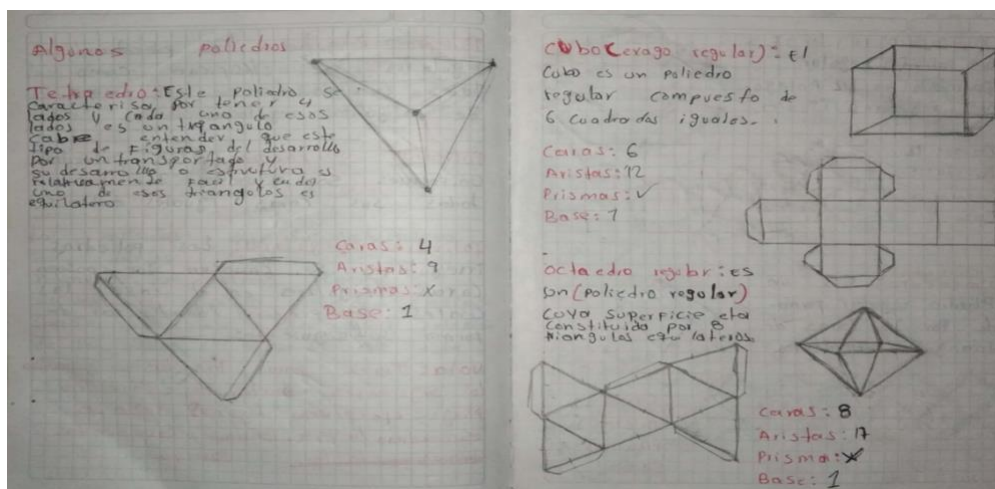 Algunos poliedros
Tetraedro: Este poliedro se
caracterisa por tener 4
lados y cada uno de esos
lados es un triangulo
Cabre entender que este
tipo de figuras del desarrollo
por un transportado y
su desarrollo o estructura es
relativamente facil y
uno de esos triangulos es
equilatero
Caras: 4
Aristas: 9
Prismas: X
Base: 1
Cubo (exago regular): El
Cubo es un poliedro
regular compuesto de
6 cuadrados iguales.
Caras: 6
Aristas: 12
Prismas: ✓
Base: 1
Octaedro regular: es
un (poliedro regular)
cuya superficie eta
constituida por 8
triangulos equilateros.
Caras: 8
Aristas: 17
Prisma: X
Base: 1